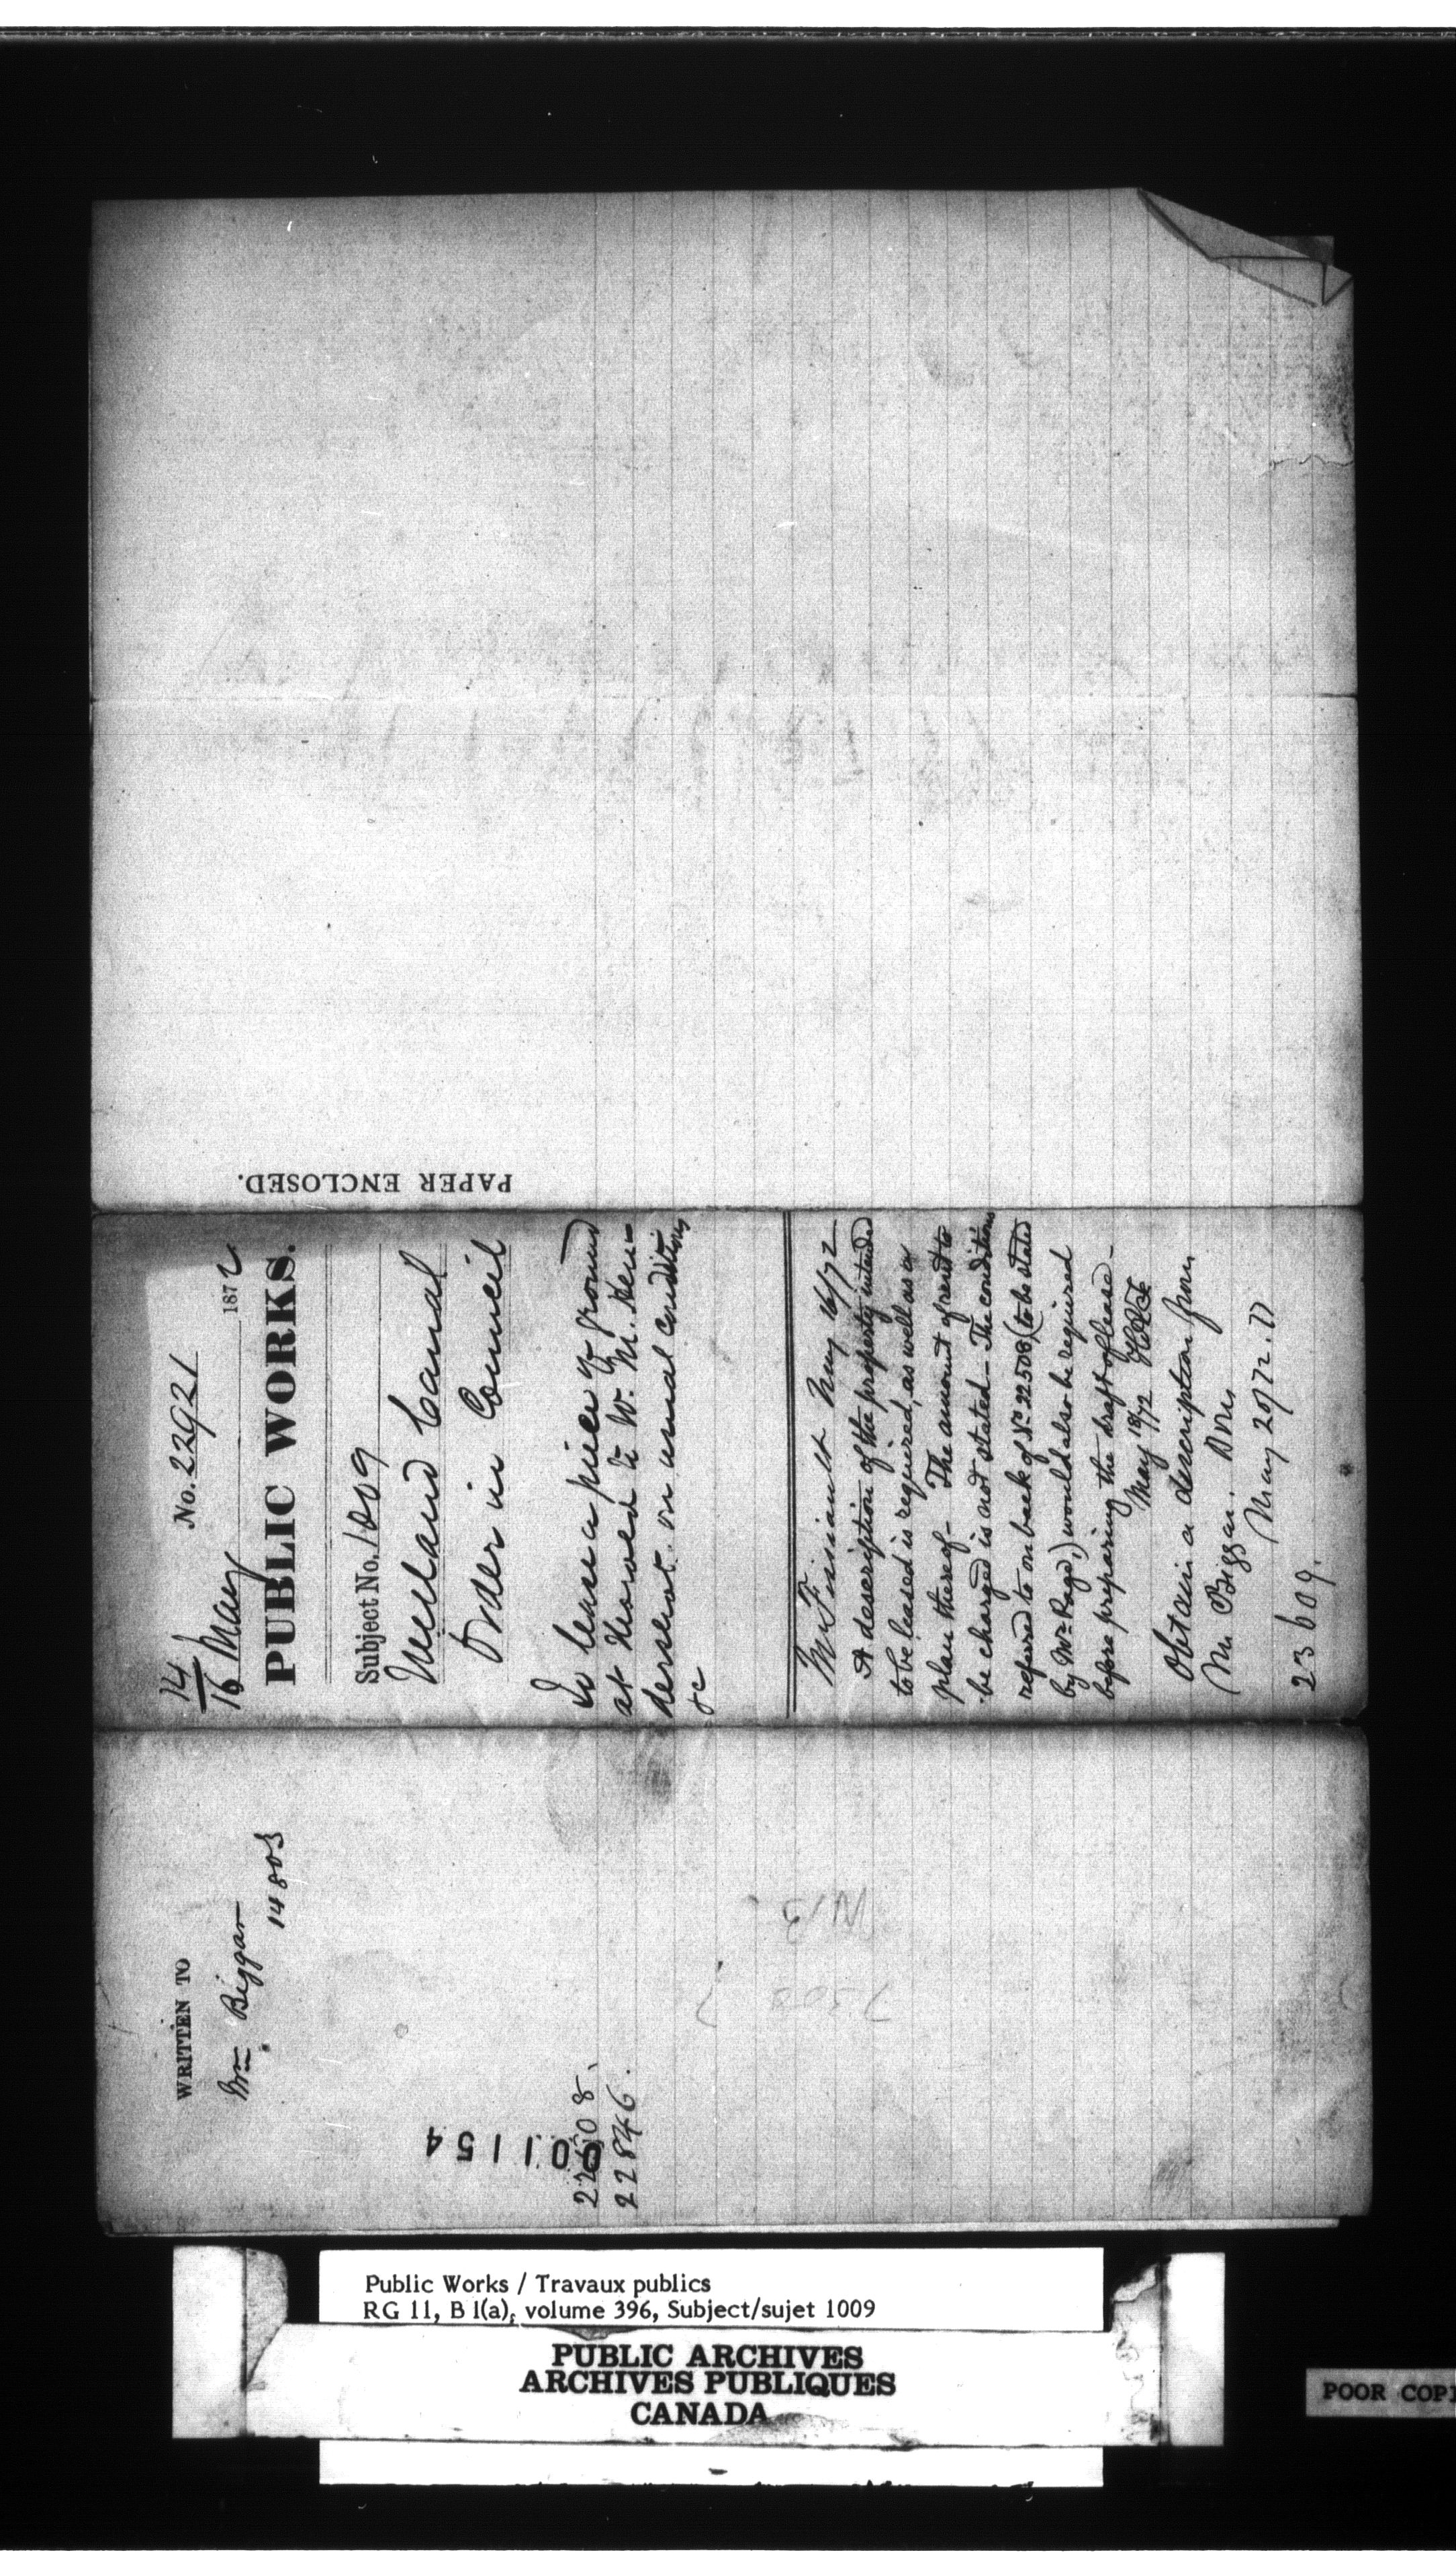 PAPER ENCLOSED.
No. 22921
14/16 May 1872
PUBLIC WORKS.
Subject No. 1009
Welland Canal
Order in Council
To lease a piece of ground
at Thorold to W. M. Hen-
dershot on usual conditions
&c
Mr Fissiault May 16/72
A description of the property intended
to be leased is required, as well as a
plan thereof - The amount of rent to
be charged is not stated - The conditions
referred to on back of No 22508, (to be stated
by Mr Page,) would also be required
before preparing the draft of lease -
May 18/72
Obtain a description from
Mr Biggar.
May 20/72.
23609.
WRITTEN TO
Wm Biggar
14803
001154
22508.
22846.
Public Works / Travaux publics
RG 11, B 1(a), volume 396, Subject/sujet 1009
PUBLIC ARCHIVES
ARCHIVES PUBLIQUES
CANADA
POOR COPY